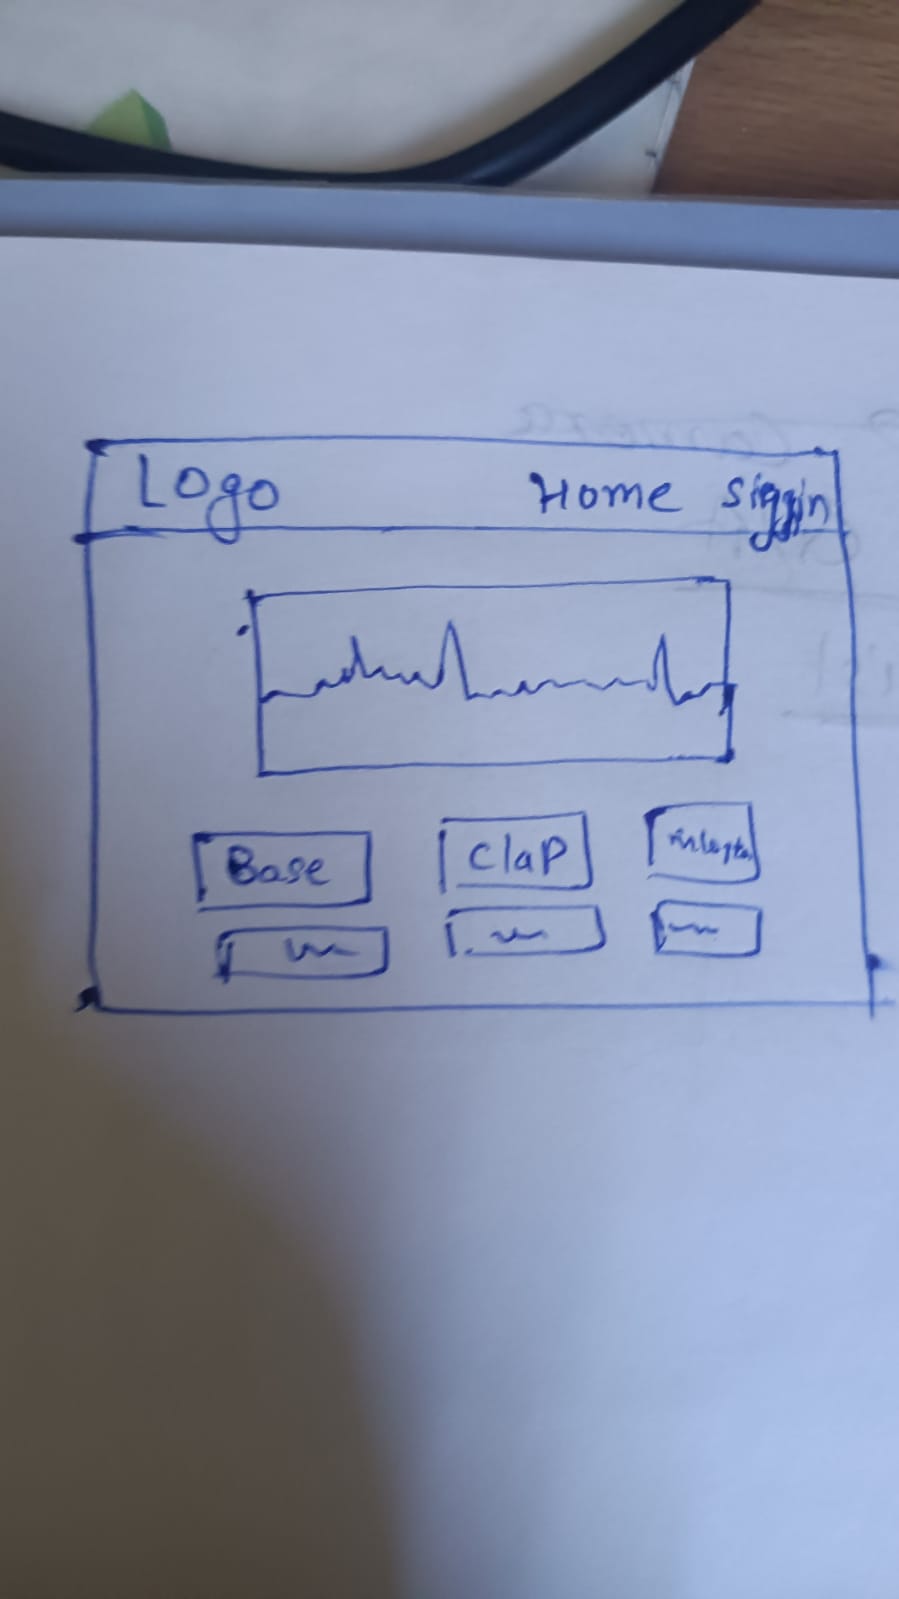 Logo Home Siggin
Base Clap